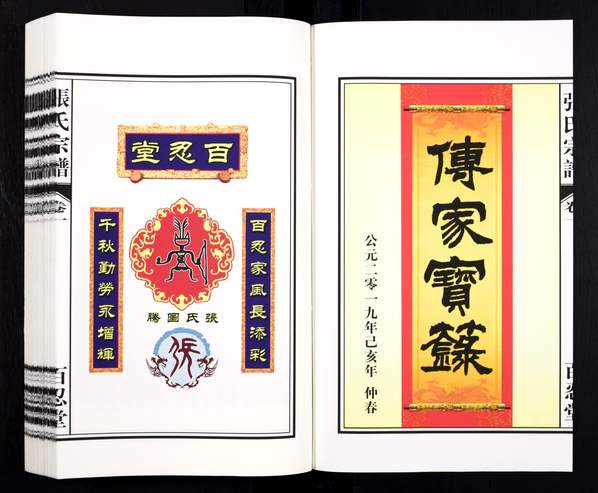 張氏宗譜
卷一
百忍堂
傳家寶籙
公元二零一九年己亥年 仲春
百忍堂
百忍家風長添彩
千秋勤勞永增輝
張氏圖騰
張氏宗譜
卷一
百忍堂